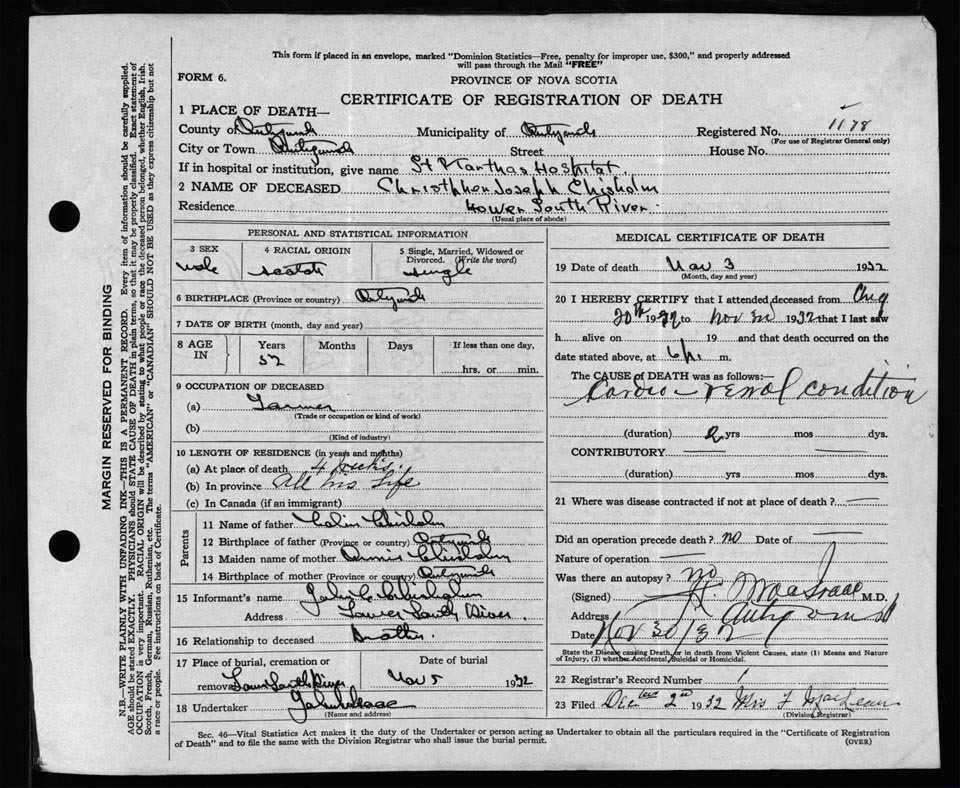 This form if placed in an envelope, marked "Dominion Statistics—Free, penalty for improper use, $300," and properly addressed
will pass through the Mail "FREE"
FORM 6.
PROVINCE OF NOVA SCOTIA
CERTIFICATE OF REGISTRATION OF DEATH
1 PLACE OF DEATH—
County of Antigonish Municipality of Antigonish Registered No. 1178
(For use of Registrar General only)
City or Town Antigonish Street House No.
If in hospital or institution, give name St Marthas Hospital.
2 NAME OF DECEASED Christopher Joseph Chisholm
Residence Lower South River
(Usual place of abode)
PERSONAL AND STATISTICAL INFORMATION
3 SEX 4 RACIAL ORIGIN 5 Single, Married, Widowed or
Divorced. (Write the word)
Male Scotch Single
6 BIRTHPLACE (Province or country) Antigonish
7 DATE OF BIRTH (month, day and year)
8 AGE IN Years Months Days If less than one day,
52 hrs. or min.
9 OCCUPATION OF DECEASED
(a) Farmer
(Trade or occupation or kind of work)
(b)
(Kind of industry)
10 LENGTH OF RESIDENCE (in years and months)
(a) At place of death 4 weeks.
(b) In province All his Life
(c) In Canada (if an immigrant)
Parents
11 Name of father Colin Chisholm
12 Birthplace of father (Province or country) Antigonish
13 Maiden name of mother Annie Chisholm
14 Birthplace of mother (Province or country) Antigonish
15 Informant's name John C Chisholm
Address Lower South River.
16 Relationship to deceased Brother.
17 Place of burial, cremation or Date of burial
removal Lower South River Nov 5 1932
18 Undertaker John
(Name and address)
MEDICAL CERTIFICATE OF DEATH
19 Date of death Nov 3 1932
(Month, day and year)
20 I HEREBY CERTIFY that I attended deceased from Aug
20th 1932 to Nov 3rd 1932 that I last saw
h alive on 19 and that death occurred on the
date stated above, at 6 p. m.
The CAUSE OF DEATH was as follows:—
Cardio-renal condition
(duration) 2 yrs mos dys.
CONTRIBUTORY —
(duration) — yrs mos dys.
21 Where was disease contracted if not at place of death? —
Did an operation precede death? no Date of —
Nature of operation —
Was there an autopsy? no
(Signed) MacIsaac M.D.
Address Antigonish
Date Nov 30/32
State the Disease causing Death, or in death from Violent Causes, state (1) Means and Nature
of Injury, (2) whether Accidental, Suicidal or Homicidal.
22 Registrar's Record Number
23 Filed Dec 2nd 1932 Mrs F MacLean
(Division Registrar)
Sec. 46—Vital Statistics Act makes it the duty of the Undertaker or person acting as Undertaker to obtain all the particulars required in the "Certificate of Registration
of Death" and to file the same with the Division Registrar who shall issue the burial permit.
(OVER)
MARGIN RESERVED FOR BINDING
N.B.—WRITE PLAINLY WITH UNFADING INK—THIS IS A PERMANENT RECORD. Every item of information should be carefully supplied.
AGE should be stated EXACTLY. PHYSICIANS should STATE CAUSE OF DEATH in plain terms, so that it may be properly classified. Exact statement of
OCCUPATION is very important. RACIAL ORIGIN will be described by stating to what people or race the deceased person belonged, whether English, Irish,
Scotch, French, German, Russian, Ruthenian, etc. The terms "AMERICAN" or "CANADIAN" SHOULD NOT BE USED as they express citizenship but not
a race or people. Fee instructions on back of Certificate.